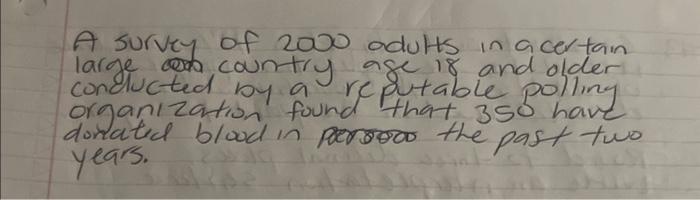 A survey of 2000 adults in a certain
large country age 18 and older
conducted by a reputable polling
organization found that 350 have
donated blood in the past two
years.